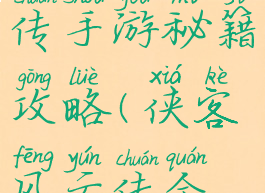 chuán shǒu yóu mì jí
传手游秘籍
gōng lüè xiá kè
攻略(侠客
fēng yún chuán quán
风云传全